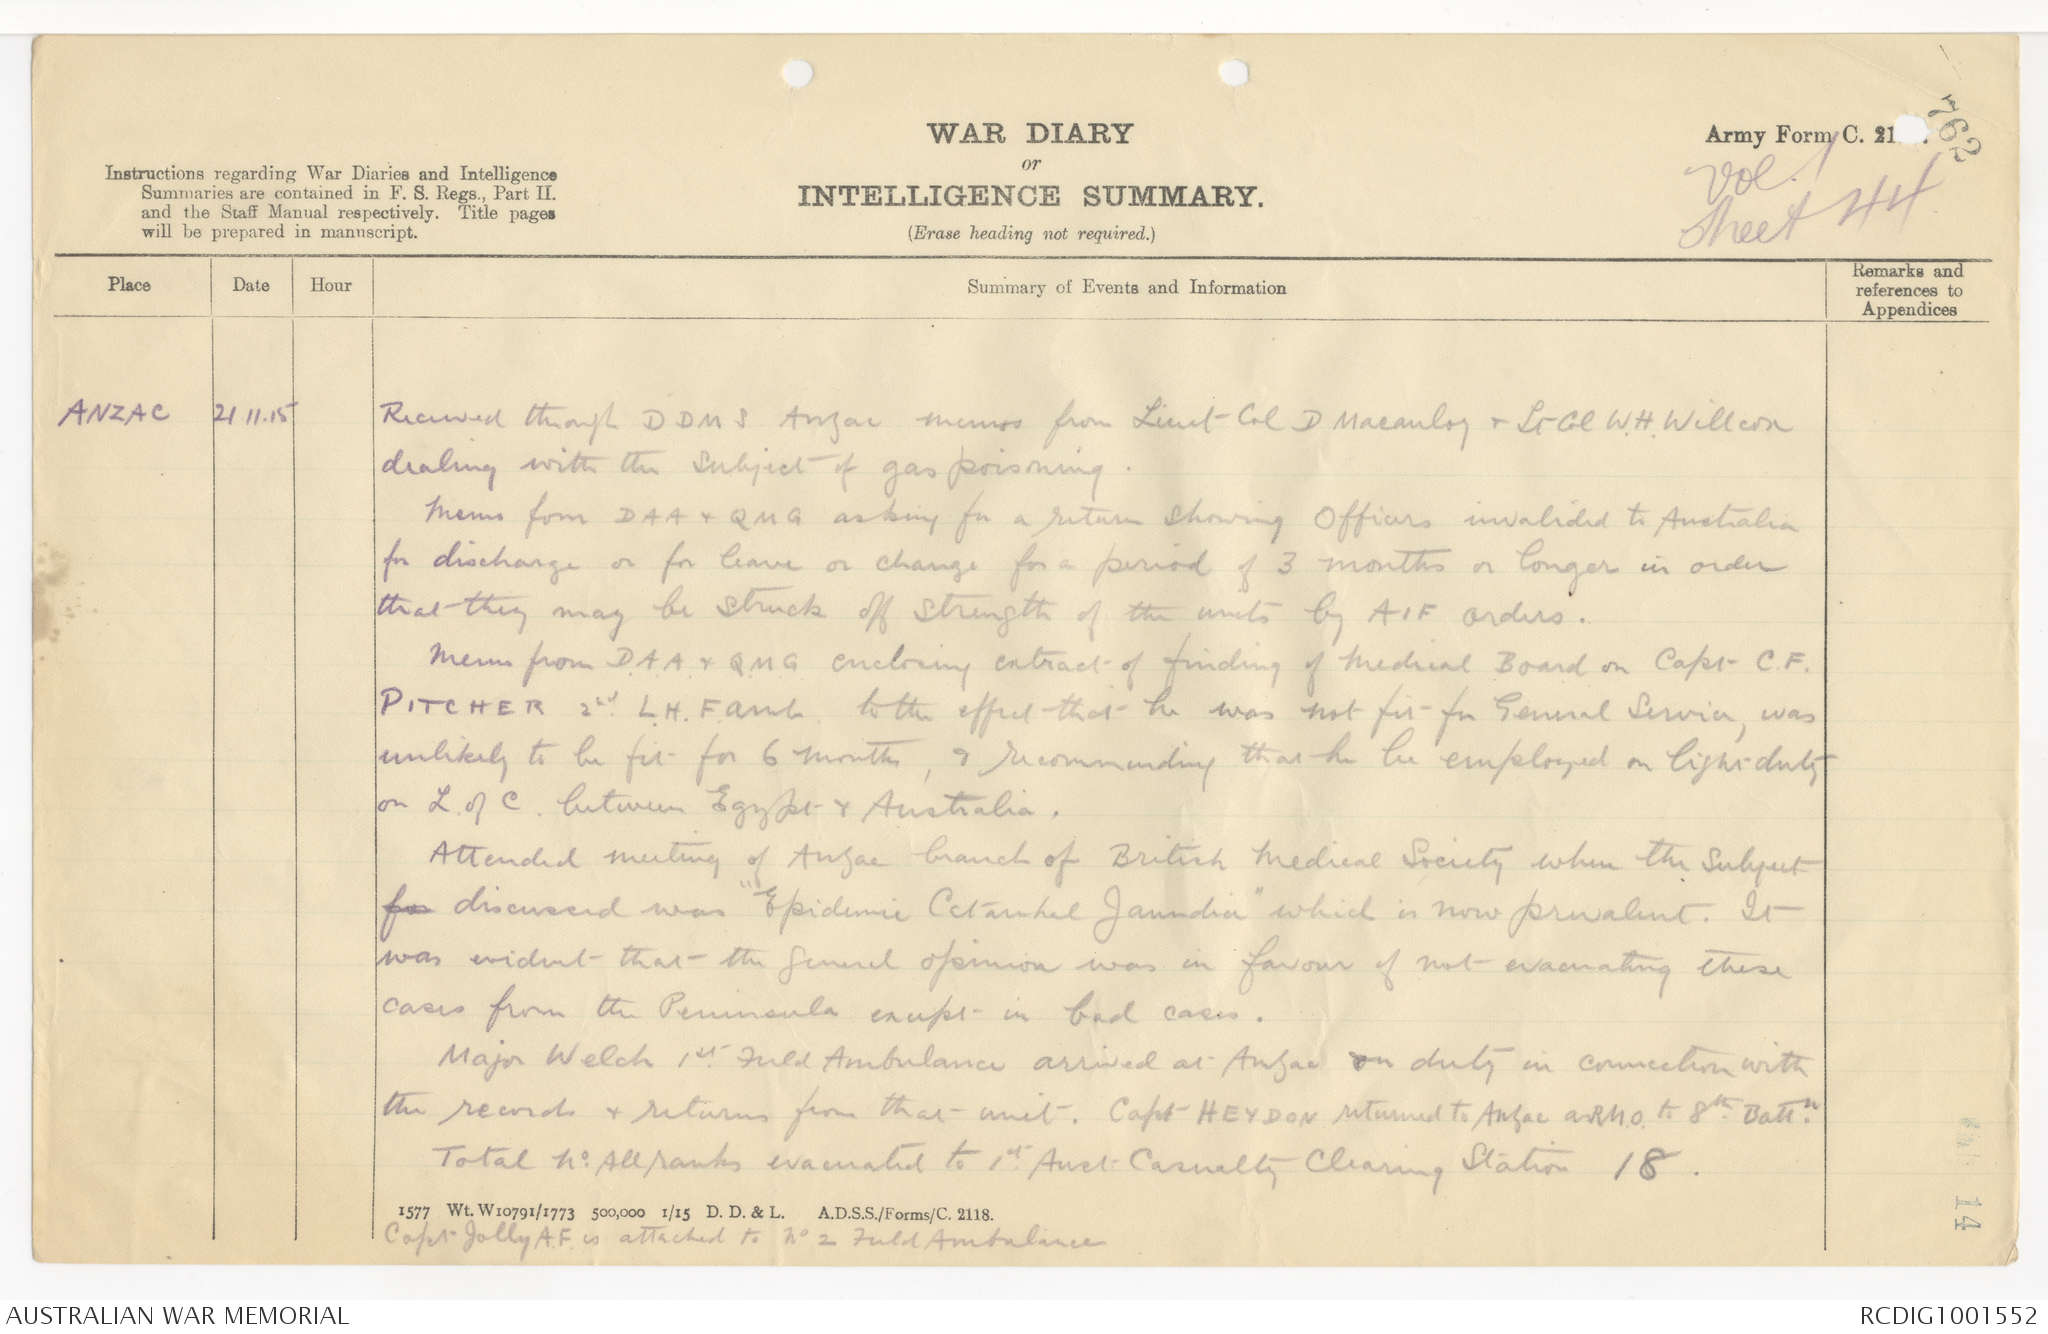 762
WAR DIARY
or
INTELLIGENCE SUMMARY.
(Erase heading not required.)
Army Form C. 21
Vol. 1
Sheet 44
Instructions regarding War Diaries and Intelligence
Summaries are contained in F. S. Regs., Part II.
and the Staff Manual respectively. Title pages
will be prepared in manuscript.
Place
Date
Hour
Summary of Events and Information
Remarks and
references to
Appendices
ANZAC 21 11.15 Received through DDMS Anzac memos from Lieut-Col D Macaulay + Lt Col W.H. Willcox
dealing with the subject of gas poisoning.
Memo from DAA + QMG asking for a return showing Officers invalided to Australia
for discharge or for leave or change for a period of 3 months or longer in order
that they may be struck off strength of the units by AIF orders.
Memo from D.A.A + Q.M.G enclosing extract of finding of Medical Board on Capt C.F.
PITCHER 2nd L.H.F. Amb. to the effect that he was not fit for General Service, was
unlikely to be fit for 6 months, & recommending that he be employed on light duty
on L. of C. between Egypt + Australia.
Attended meeting of Anzac branch of British Medical Society when the subject
for discussed was "Epidemic Catarrhal Jaundice" which is now prevalent. It
was evident that the general opinion was in favour of not evacuating these
cases from the Peninsula except in bad cases.
Major Welch 1st Field Ambulance arrived at Anzac on duty in connection with
the records + returns from that unit. Capt HEYDON returned to Anzac as RMO. to 8th Battn.
Total No. All ranks evacuated to 1st Aust Casualty Clearing Station 18.
1577 Wt. W10791/1773 500,000 1/15 D. D. & L. A.D.S.S./Forms/C. 2118.
Capt Jolly A.F. is attached to No 2 Field Ambulance
14
AUSTRALIAN WAR MEMORIAL
RCDIG1001552